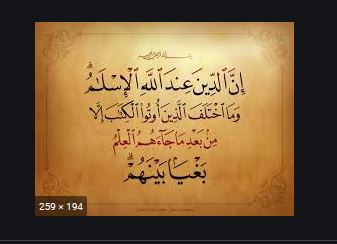 إِنَّ ٱلدِّينَ عِندَ ٱللَّهِ ٱلْإِسْلَـٰمُ ۗ
وَمَا ٱخْتَلَفَ ٱلَّذِينَ أُوتُوا۟ ٱلْكِتَـٰبَ إِلَّا
مِنۢ بَعْدِ مَا جَآءَهُمُ ٱلْعِلْمُ
بَغْيًۢا بَيْنَهُمْ ۗ
259 × 194